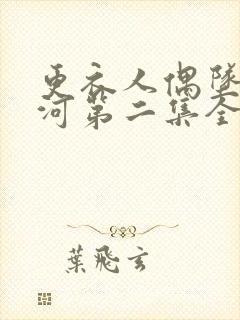 更衣人偶墜
河第二集全
葉飛玄